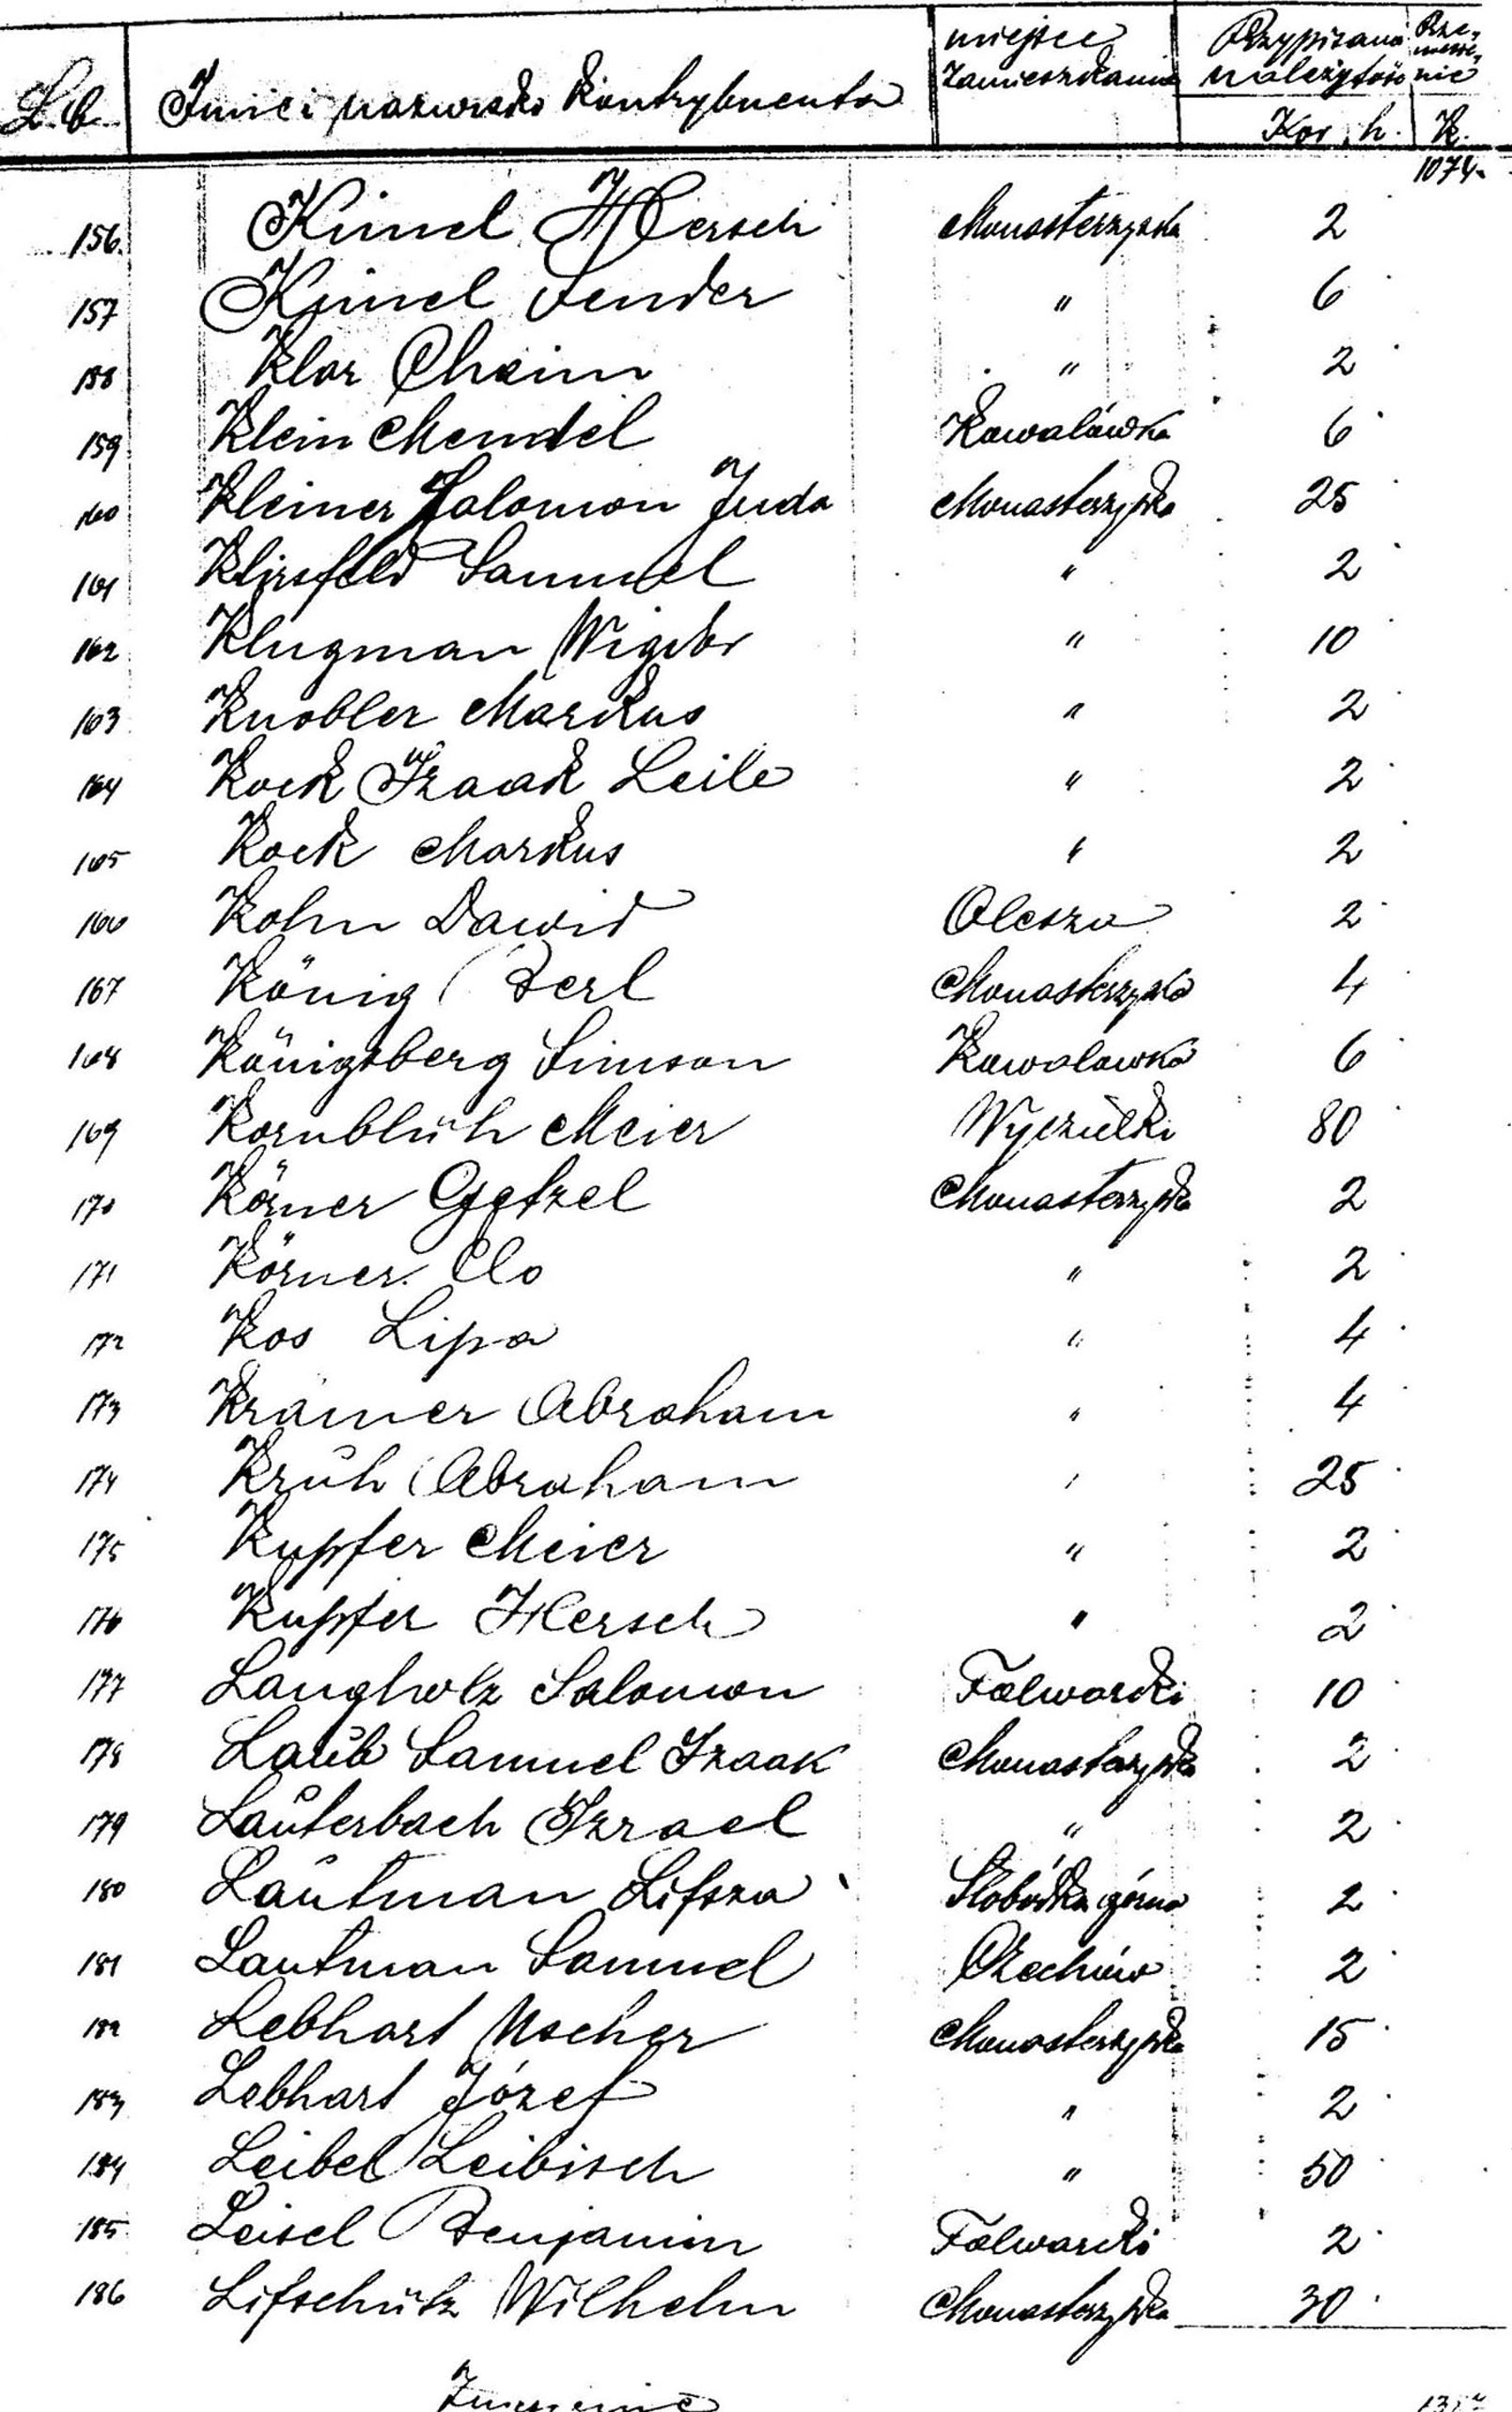 L.b. Imię i nazwisko Kontrybuenta miejsce zamieszkania Przypisana należytość Prze-niesienie
Kor. h. K.
1074
156. Kimel Hersch Monasterzyska 2
157 Kimel Sender " 6
158 Klar Chaim " 2
159 Klein Mendel Kowalówka 6
160 Kleiner Salomon Juda Monasterzyska 25
161 Klirsfeld Samuel " 2
162 Klugman Wigdor " 10
163 Knobler Markus " 2
164 Kock Izaak Leib " 2
165 Kock Markus " 2
166 Kohn Dawid Olesza 2
167 König Berl Monasterzyska 4
168 Königsberg Simson Kowalowka 6
169 Kornblüh Meier Wyczułki 80
170 Körner Getzel Monasterzyska 2
171 Körner " 2
172 Kos Lipa " 4
173 Krämer Abraham " 4
174 Krŭh Abraham " 25
175 Kupfer Meier " 2
176 Kupfer Hersch " 2
177 Langholz Salomon Folwarki 10
178 Laŭb Samuel Izaak Monasterzyska 2
179 Laŭterbach Izrael " 2
180 Laŭtman Lifsza Słobódka górna 2
181 Lautman Samuel Czechów 2
182 Lebhart Uscher Monasterzyska 15
183 Lebhart Józef " 2
184 Leibel Leibisch " 50
185 Leisel Benjamin Folwarki 2
186 Lifschütz Wilhelm Monasterzyska 30